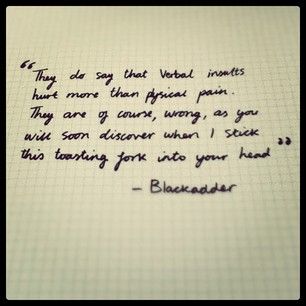 "They do say that Verbal insults
hurt more than pysical pain.
They are of course, wrong, as you
will soon discover when I stick
this toasting fork into your head"
- Blackadder